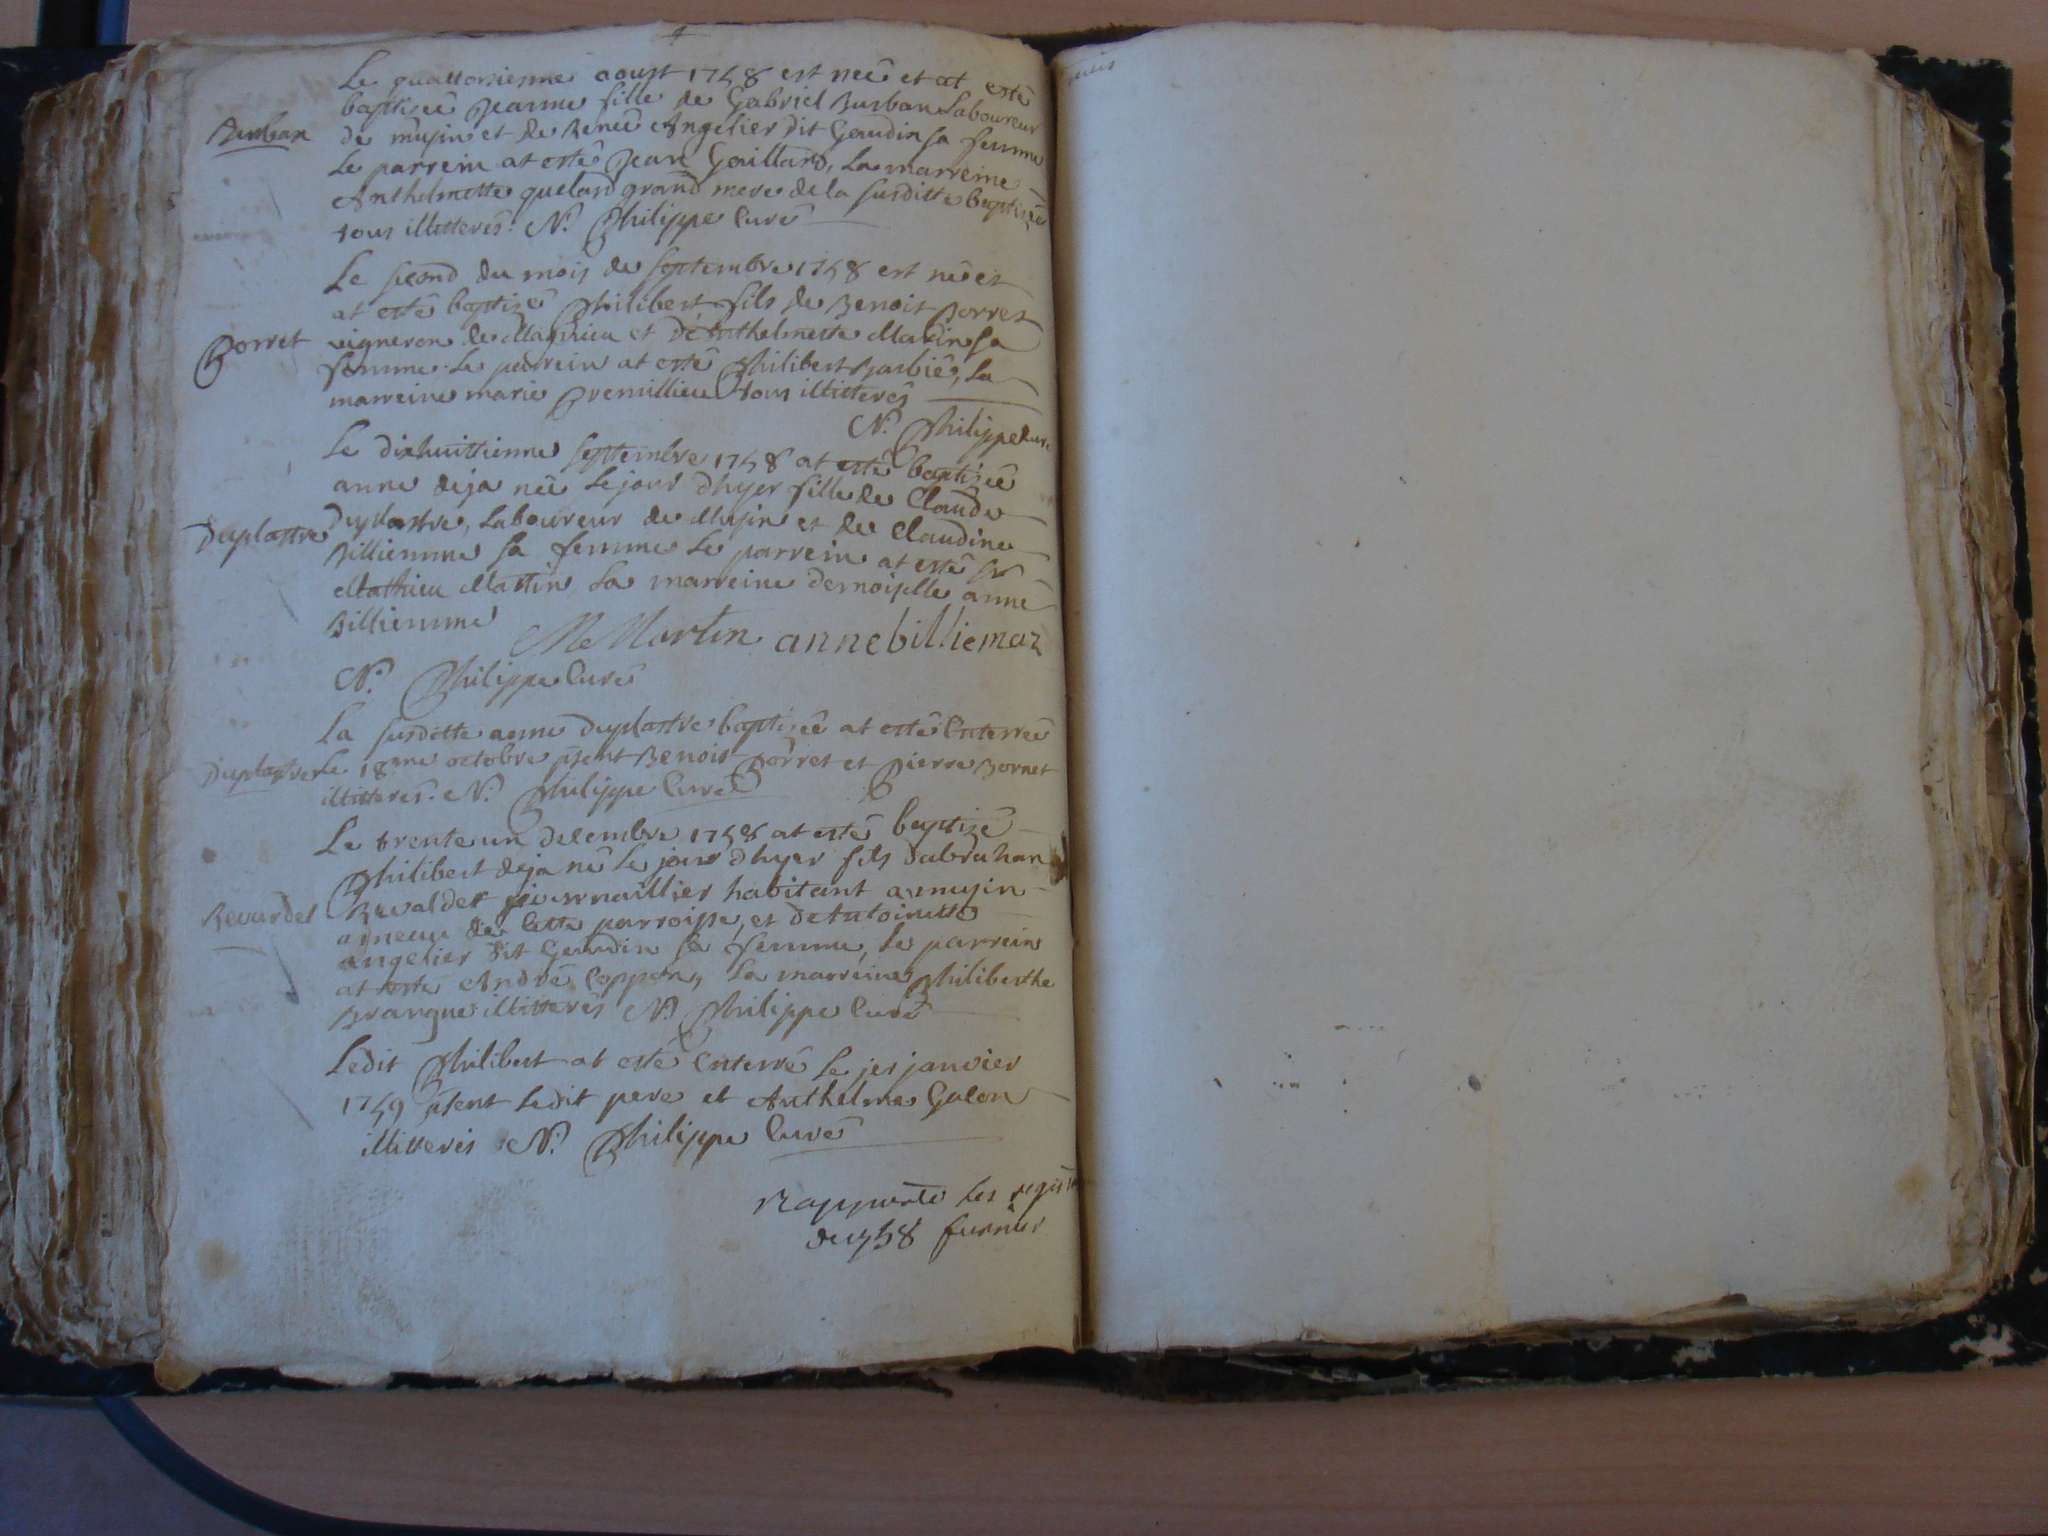 Le quattorsieme aoust 1758 est neé et at esté
baptiseé Jeanne fille de Gabriel Burban Laboureur
Burban
de musin et de Reneé Angelier dit Gaudin sa femme
Le parrein at esté Jean Gaillard, La marreine
Anthelmette quelard grand mere de la susditte baptiseé
tous illitterés. N. Philippe Curé
Le second du mois de septembre 1758 est né et
at esté baptisé Philibert fils de Benoit Porret
Porret
vigneron de Magnieu et de Anthelmette Martin sa
femme. Le parrein at esté Philibert Barbié, La
marreine marie Premillieu tous illitterés
N. Philippe Curé
Le dixhuittieme septembre 1758 at esté baptiseé
anne deja neé Le jour d'hyer fille de Claude
Duplastre
Duplastre, Laboureur de Musin et de Claudine
Billiemme sa femme Le parrein at esté sr
Mathieu Martin La marreine demoiselle anne
Billiemme
Me Martin anne billiemaz
N. Philippe Curé
La susditte anne Duplastre baptiseé at esté Enterreé
Duplastre
Le 18me octobre psent Benoit Porret et Pierre Bornet
illitterés. N. Philippe Curé
Le trente un decembre 1758 at esté baptisé
Philibert deja né Le jour d'hyer fils d'abraham
Revardel
habitant a musin
anneau de Cette parroisse, et de antoinette
angelier dit Gaudin sa femme, Le parrein
at esté André Coppon, La marreine Philiberthe
Brangue illitterés N. Philippe Curé
Ledit Philibert at esté Enterré Le jer janvier
1759 psent Ledit pere et Anthelme Galon
illitterés N. Philippe Curé
Rapporté Les regist
de 1758